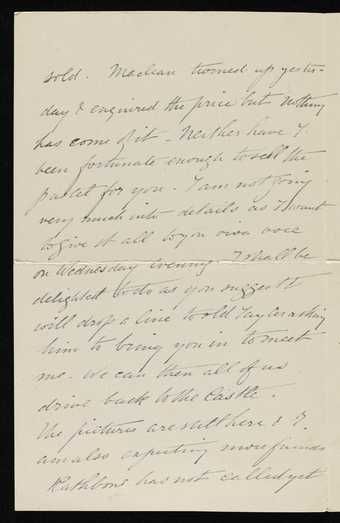 sold. Maclean turned up yester-
day & enquired the price but nothing
has come of it - Neither have I
been fortunate enough to sell the
for you. I am not going
very much into details as I want
to give it all to you viva voce
on Wednesday evening. I shall be
delighted to do as you suggest &
will drop a line to old Taylor asking
him to bring you in to meet
me. We can then all of us
drive back to the Castle.
The pictures are still here & I
am also expecting more from
Rathbone has not called yet